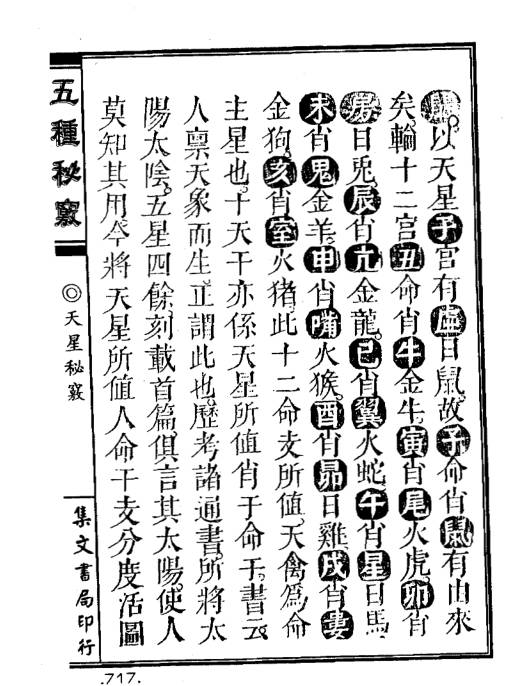 關。以天星子宮有虛日鼠。故子命肖鼠有由來
矣。輪十二宮丑命肖牛金牛。寅肖尾火虎。卯肖
房日兎。辰肖亢金龍。巳肖翼火蛇。午肖星日馬
未肖鬼金羊。申肖嘴火猴。酉肖昴日雞。戌肖婁
金狗。亥肖室火猪。此十二命支所値。天禽爲命
主星也。十天干亦係天星所値肖于命于。書云
人稟天象而生。正謂此也。歷考諸通書。所將太
陽太陰。五星四餘。刻載首篇。俱言其太陽。使人
莫知其用。今將天星所値人命干支分度活圖
五種秘竅
◎天星秘竅
集文書局印行
.717.